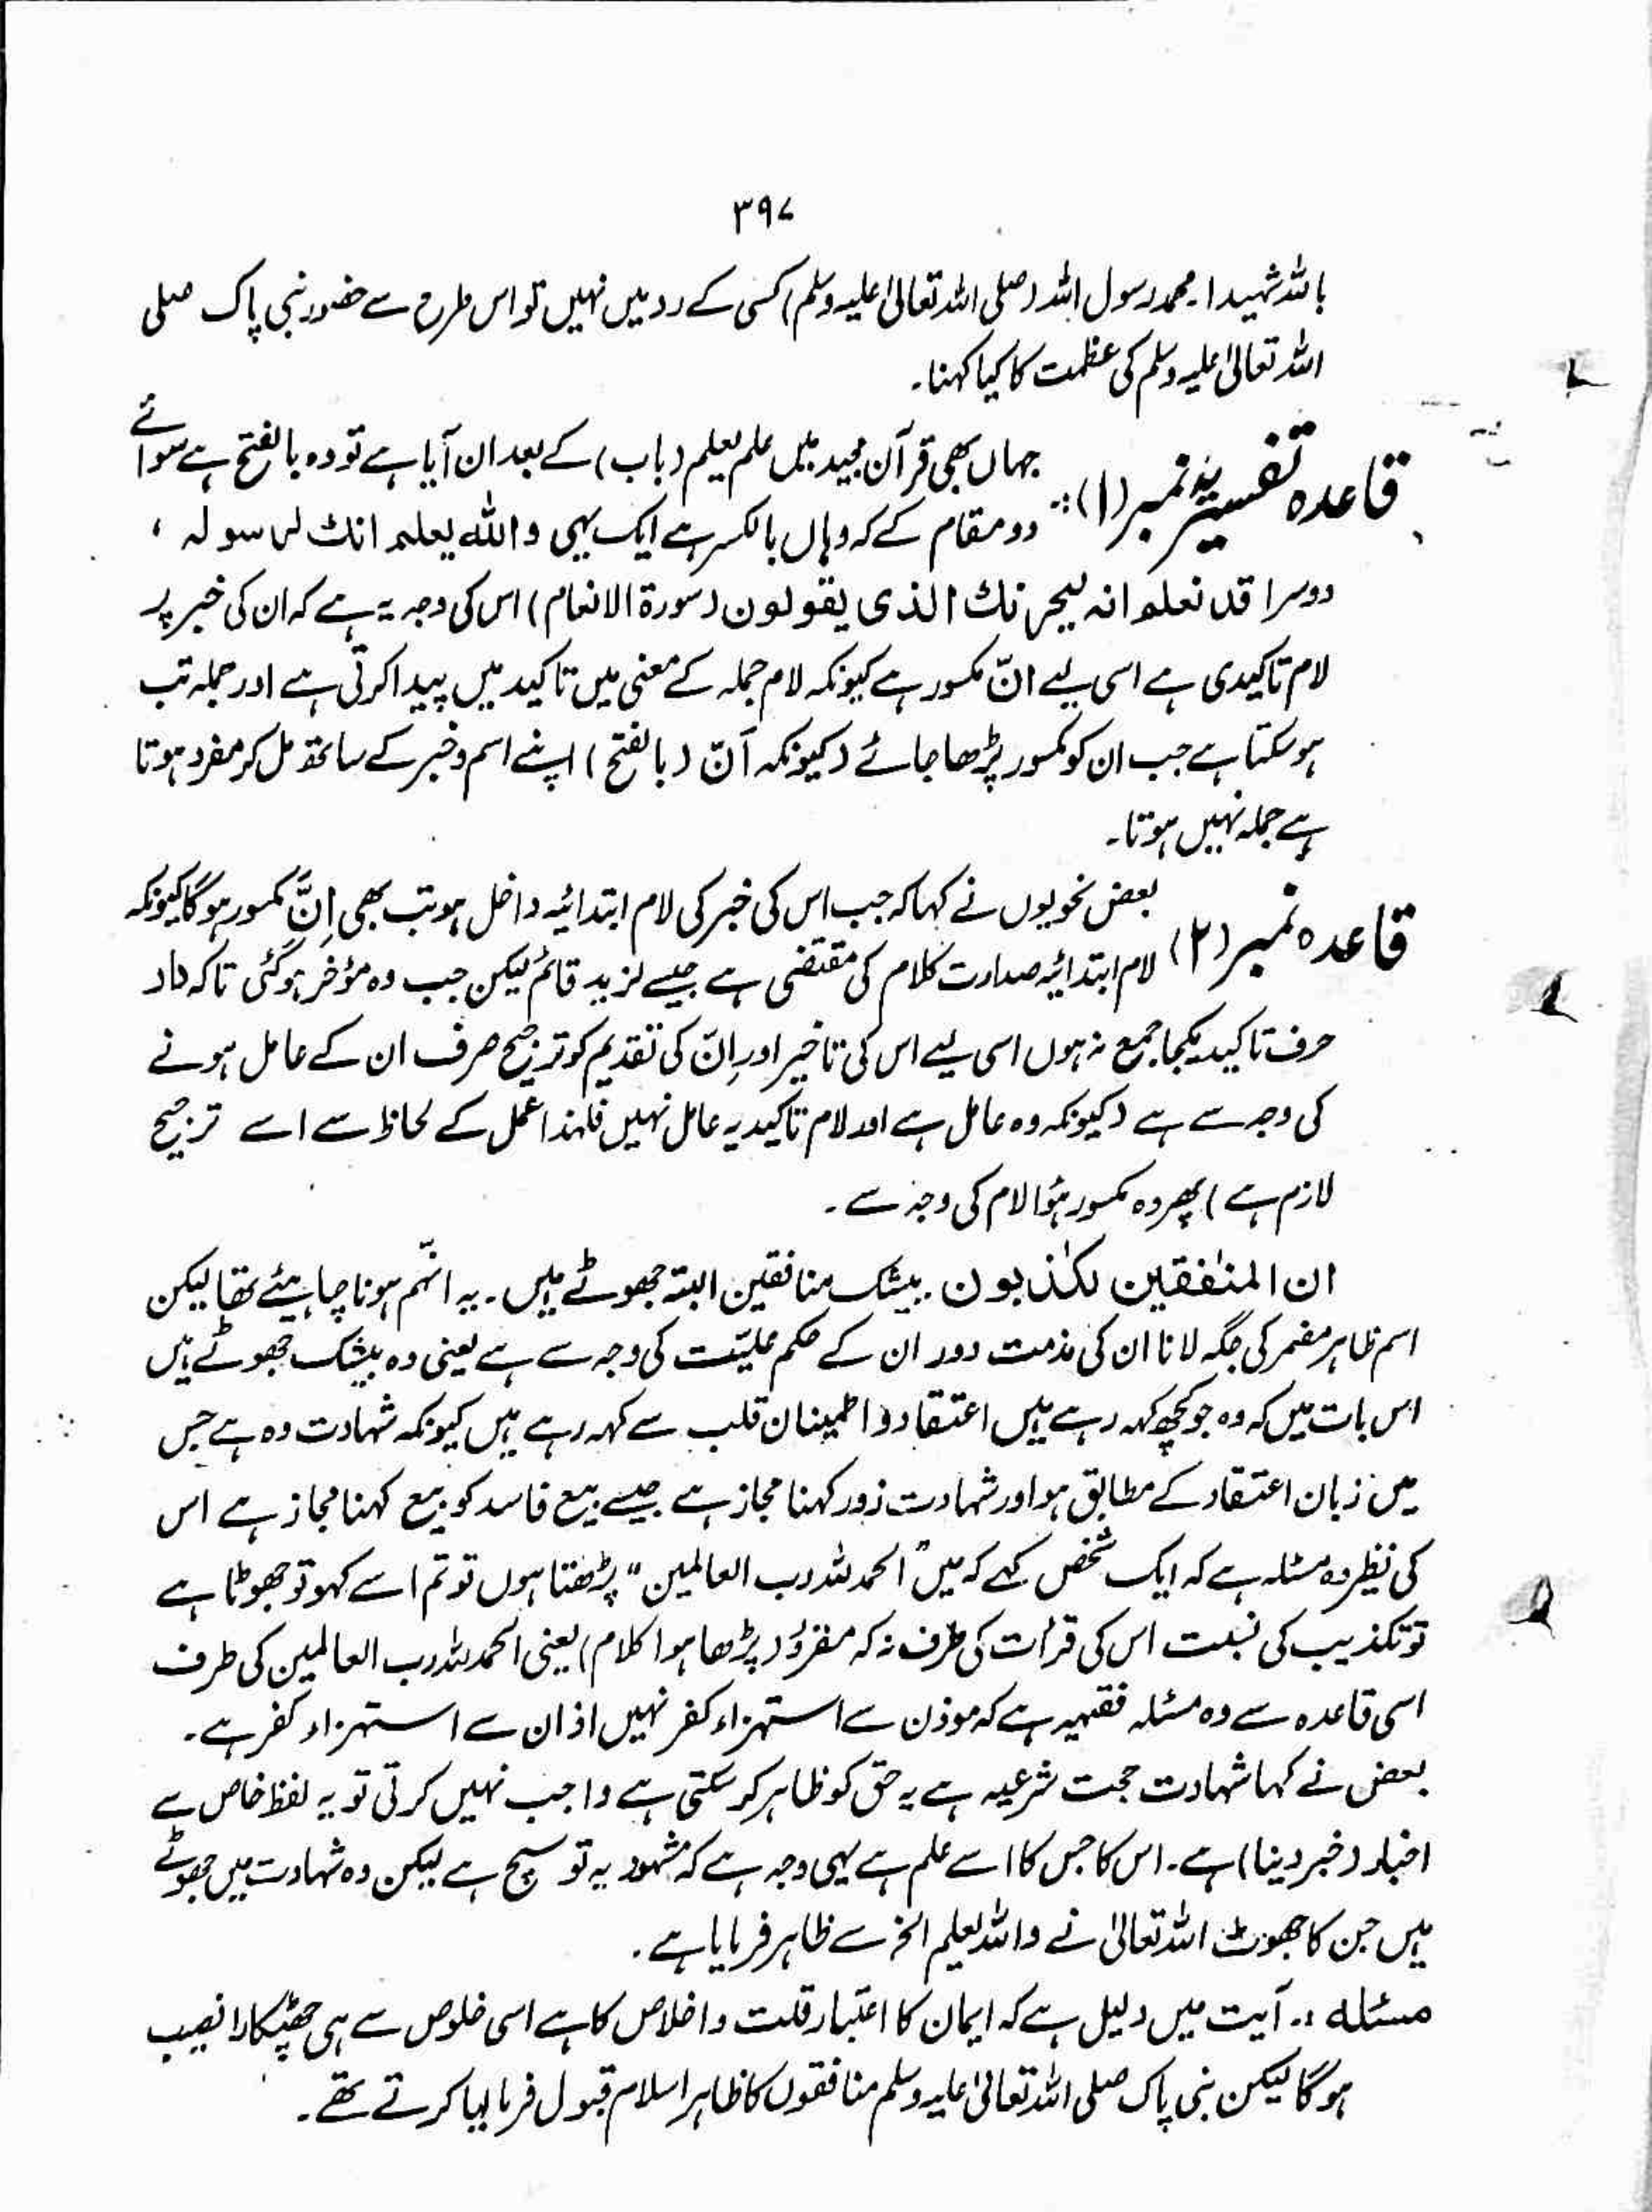 ۳۹۷
باللہ شہیدا۔ محمد رسول اللہ (صلی اللہ تعالیٰ علیہ وسلم) کسی کے رد میں نہیں تو اس طرح سے حضور نبی پاک صلی
اللہ تعالیٰ علیہ وسلم کی عظمت کا کیا کہنا۔
قاعدہ تفسیریہ نمبر (۱) :۔ جہاں بھی قرآن مجید میں علم یعلم (باب) کے بعد ان آیا ہے تو وہ بالفتح ہے سوائے
دو مقام کے کہ وہاں بالکسر ہے ایک یہی واللہ یعلم انک لرسولہ ،
دوسرا قد نعلم انہ لیحزنک الذی یقولون (سورۃ الانعام) اس کی وجہ یہ ہے کہ ان کی خبر پر
لام تاکیدی ہے اسی لیے انّ مکسور ہے کیونکہ لام جملہ کے معنی میں تاکید میں پیدا کرتی ہے اور جملہ تب
ہو سکتا ہے جب ان کو مکسور پڑھا جائے (کیونکہ اَنّ (بالفتح) اپنے اسم و خبر کے ساتھ مل کر مفرد ہوتا
ہے جملہ نہیں ہوتا۔
قاعدہ نمبر (۲) بعض نحویوں نے کہا کہ جب اس کی خبر کی لام ابتدائیہ داخل ہو تب بھی اِنَّ مکسور ہو گا کیونکہ
لام ابتدائیہ صدارت کلام کی مقتضی ہے جیسے لزید قائم لیکن جب وہ مؤخر ہو گئی تاکہ دو
حرف تاکید یکجا جمع نہ ہوں اسی لیے اس کی تاخیر اور اِنّ کی تقدیم کو ترجیح صرف ان کے عامل ہونے
کی وجہ سے ہے (کیونکہ وہ عامل ہے اور لام تاکیدیہ عامل نہیں فلہذا عمل کے لحاظ سے اسے ترجیح
لازم ہے) پھر وہ مکسور ہؤا لام کی وجہ سے ۔
ان المنٰفقین لکٰذبون۔ بیشک منافقین البتہ جھوٹے ہیں۔ یہ انہّم ہونا چاہیئے تھا لیکن
اسم ظاہر مضمر کی جگہ لانا ان کی مذمت دور ان کے حکم علیّت کی وجہ سے ہے یعنی وہ بیشک جھوٹے ہیں
اس بات میں کہ وہ جو کچھ کہہ رہے ہیں اعتقاد و اطمینان قلب سے کہہ رہے ہیں کیونکہ شہادت وہ ہے جس
میں زبان اعتقاد کے مطابق ہو اور شہادت زور کہنا مجاز ہے جیسے بیع فاسد کو بیع کہنا مجاز ہے اس
کی نظیر وہ مسئلہ ہے کہ ایک شخص کہے کہ میں "الحمد للہ رب العالمین" پڑھتا ہوں تو تم اسے کہو تو جھوٹا ہے
تو تکذیب کی نسبت اس کی قرأت کی طرف نہ کہ مقروُ (پڑھا ہوا کلام) یعنی الحمد للہ رب العالمین کی طرف
اسی قاعدہ سے وہ مسئلہ فقہیہ ہے کہ موذن سے استہزاء کفر نہیں اذان سے استہزاء کفر ہے۔
بعض نے کہا شہادت حجت شرعیہ ہے یہ حق کو ظاہر کر سکتی ہے واجب نہیں کرتی تو یہ لفظ خاص ہے
اخبار (خبر دینا) ہے۔ اس کا جس کا اسے علم ہے یہی وجہ ہے کہ مشہود یہ تو سچ ہے لیکن وہ شہادت میں جھوٹے
ہیں جن کا جھوٹ اللہ تعالیٰ نے واللہ یعلم الخ سے ظاہر فرمایا ہے ۔
مسئلہ :۔ آیت میں دلیل ہے کہ ایمان کا اعتبار قلت و اخلاص کا ہے اسی خلوص سے ہی چھٹکارا نصیب
ہو گا لیکن نبی پاک صلی اللہ تعالیٰ علیہ وسلم منافقوں کا ظاہر اسلام قبول فرما لیا کرتے تھے۔